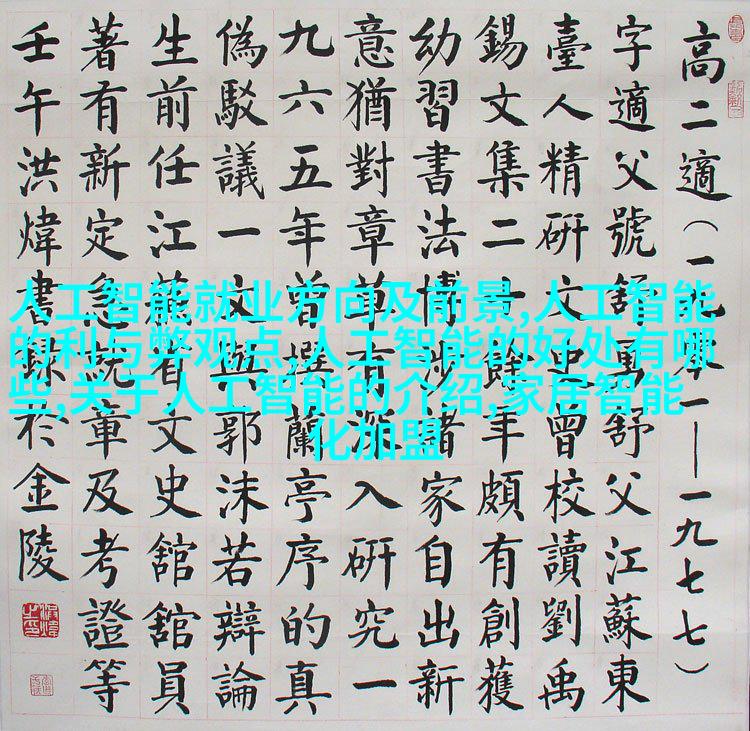 高二適（一九一——一九七七）
字適父號舒舒父江蘇東
臺人精研文史曾校讀劉禹
錫文集二十餘年頗有創獲
幼習書法博涉諸家自出新
意猶對章草有深入研究一
九六五年曾撰蘭亭序的真
偽駁議一文與郭沫若辯論
生前任江蘇省文史舘舘員
著有新定急就章及考證等
壬午洪煒書録於金陵
人工智能就业方向及前景,人工智能
的利与弊观点,人工智能的好处有哪
些,关于人工智能的介绍,家居智能
化加盟